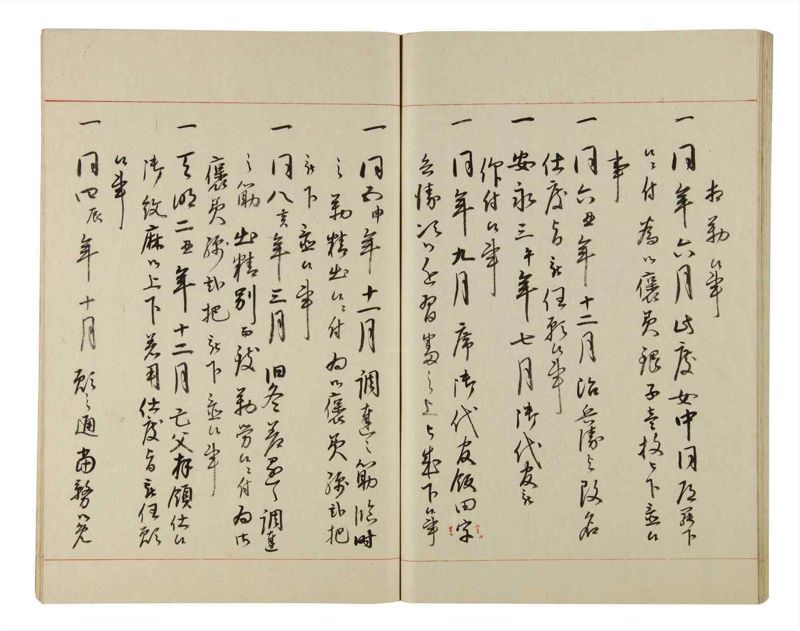 相勤候事
一同年六月此度女中同道罷下
候ニ付為御褒美銀子壱枚被下置候
事
一同六丑年十二月治兵衛与改名
仕度旨被任願候事
一安永三午年七月御代官被
仰付候事
一同年九月席御代官飯田宇
兵衛次御近習番之上被成下候事
一同五申年十一月調達之筋臨時
之勤精出候ニ付為御褒美鳩目把
被下置候事
一同八亥年三月旧冬差遣調達
之筋出精別而致勤労候ニ付為御
褒美 把被下置候事
一天明二丑年十二月亡父拝領仕候
御紋麻御上下着用仕度旨被任願
候事
一同四辰年十月願之通当務御免